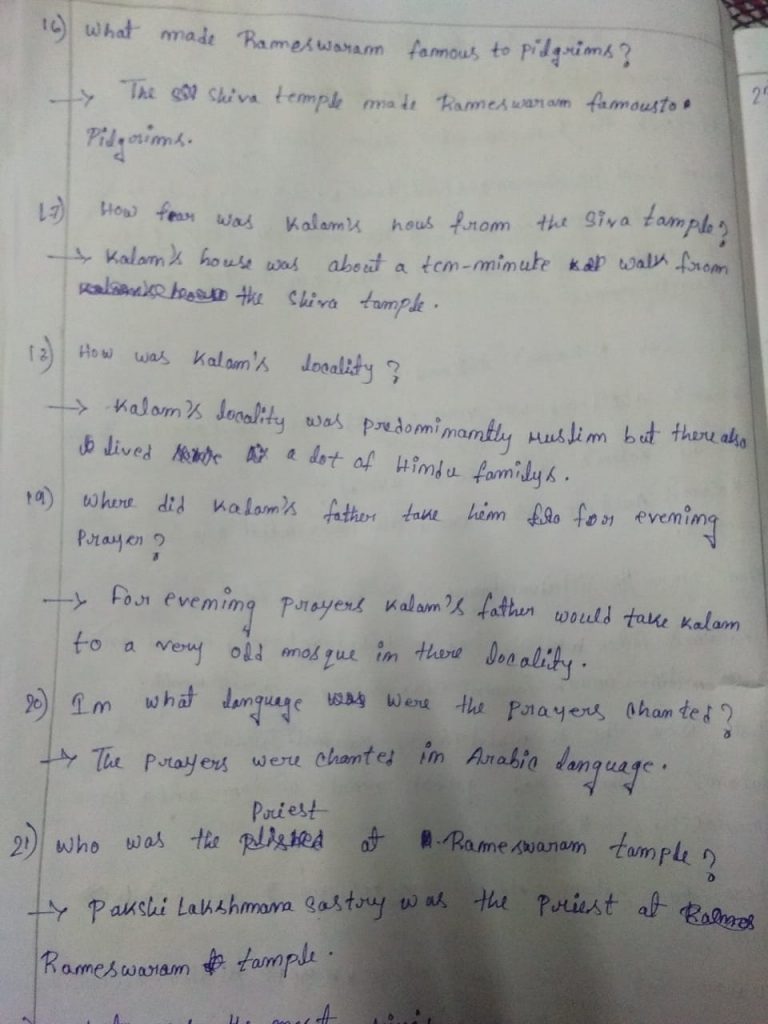 16) What made Rameswaram famous to pidgrims?
→ The Shiva temple made Rameswaram famousto
Pidgrims.
17) How far was Kalam's hous from the Siva tample?
→ Kalam's house was about a ten-minute walk from
the Shiva tample.
18) How was Kalam's locality?
→ Kalam's locality was predominamtly Muslim but there also
lived a lot of Hindu familys.
19) Where did Kalam's father take him for evening
Prayer?
→ For evening prayers Kalam's father would take Kalam
to a very old mosque in there locality.
20) In what language were the prayers chanted?
→ The prayers were chanted in Arabic language.
Priest
21) Who was the at Rameswaram tample?
→ Pakshi Lakshmana Sastry was the priest at
Rameswaram tample.
the most